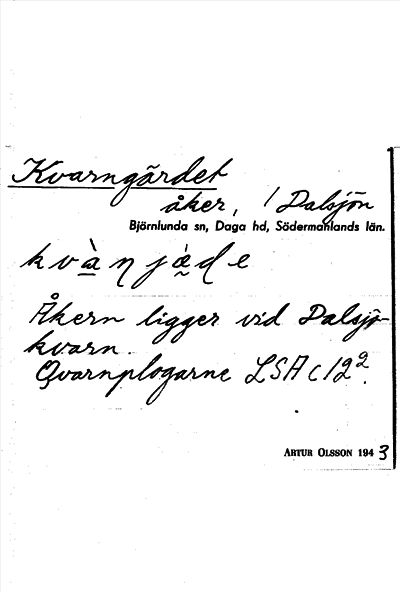 Kvarngärdet
åker, / Dalsjön
Björnlunda sn, Daga hd, Södermanlands län.
kvànjáde
Åkern ligger vid Dalsjö-
kvarn.
Qvarnplogarne LSA C12²
ARTUR OLSSON 1943